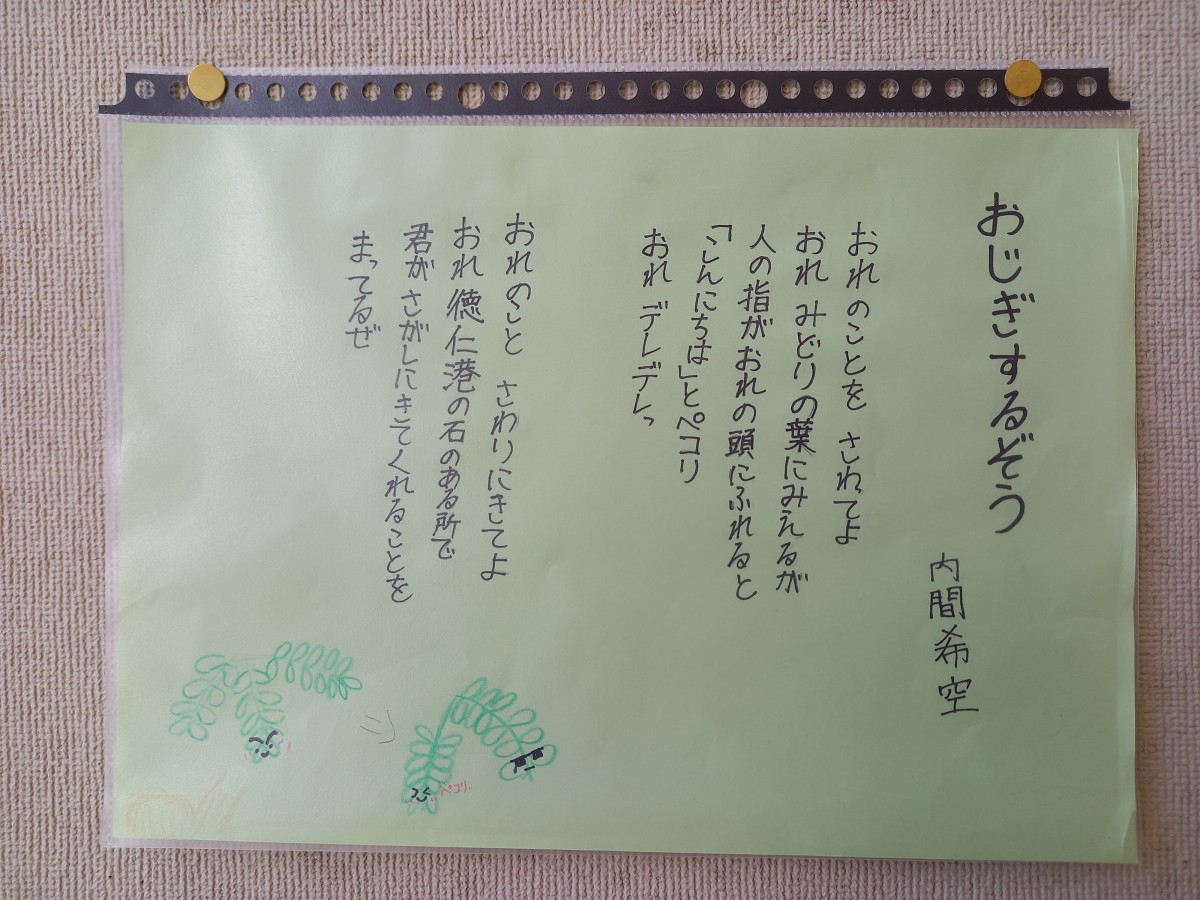 おじぎするぞう
内間希空
おれのことを さわってよ
おれ みどりの葉にみえるが
人の指がおれの頭にふれると
「こんにちは」とペコリ
おれ デレデレっ
おれのこと さわりにきてよ
おれ 徳仁港の石のある所で
君が さがしにきてくれることを
まってるぜ
ペコリ